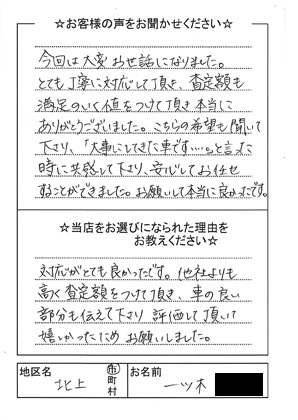 ☆お客様の声をお聞かせください☆
今回は大変お世話になりました。
とても丁寧に対応して頂き、査定額も
満足のいく値をつけて頂き本当に
ありがとうございました。こちらの希望も聞いて
下さり、「大事にしてきた車です……。」と言った
時に共感して下さり、安心してお任せ
することができました。お願いして本当に良かったです。
☆当店をお選びになられた理由を
お教えください☆
対応がとても良かったです。他社よりも
高く査定額をつけて頂き、車の良い
部分も伝えて下さり評価して頂いて
嬉しかったためお願いしました。
地区名 北上 市町村 お名前 一ツ木